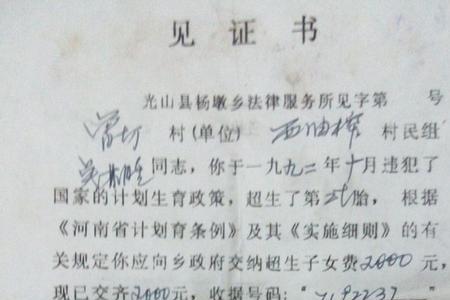 见 证 书
光山县杨墩乡法律服务所见字第 号
村(单位) 西油榨 村民组
同志，你于一九九二年十月违犯了
国家的计划生育政策，超生了第 胎，根据
《河南省计划育条例》及其《实施细则》的有
关规定你应向乡政府交纳超生子女费2000元，
现已交齐2000元，收据号码："